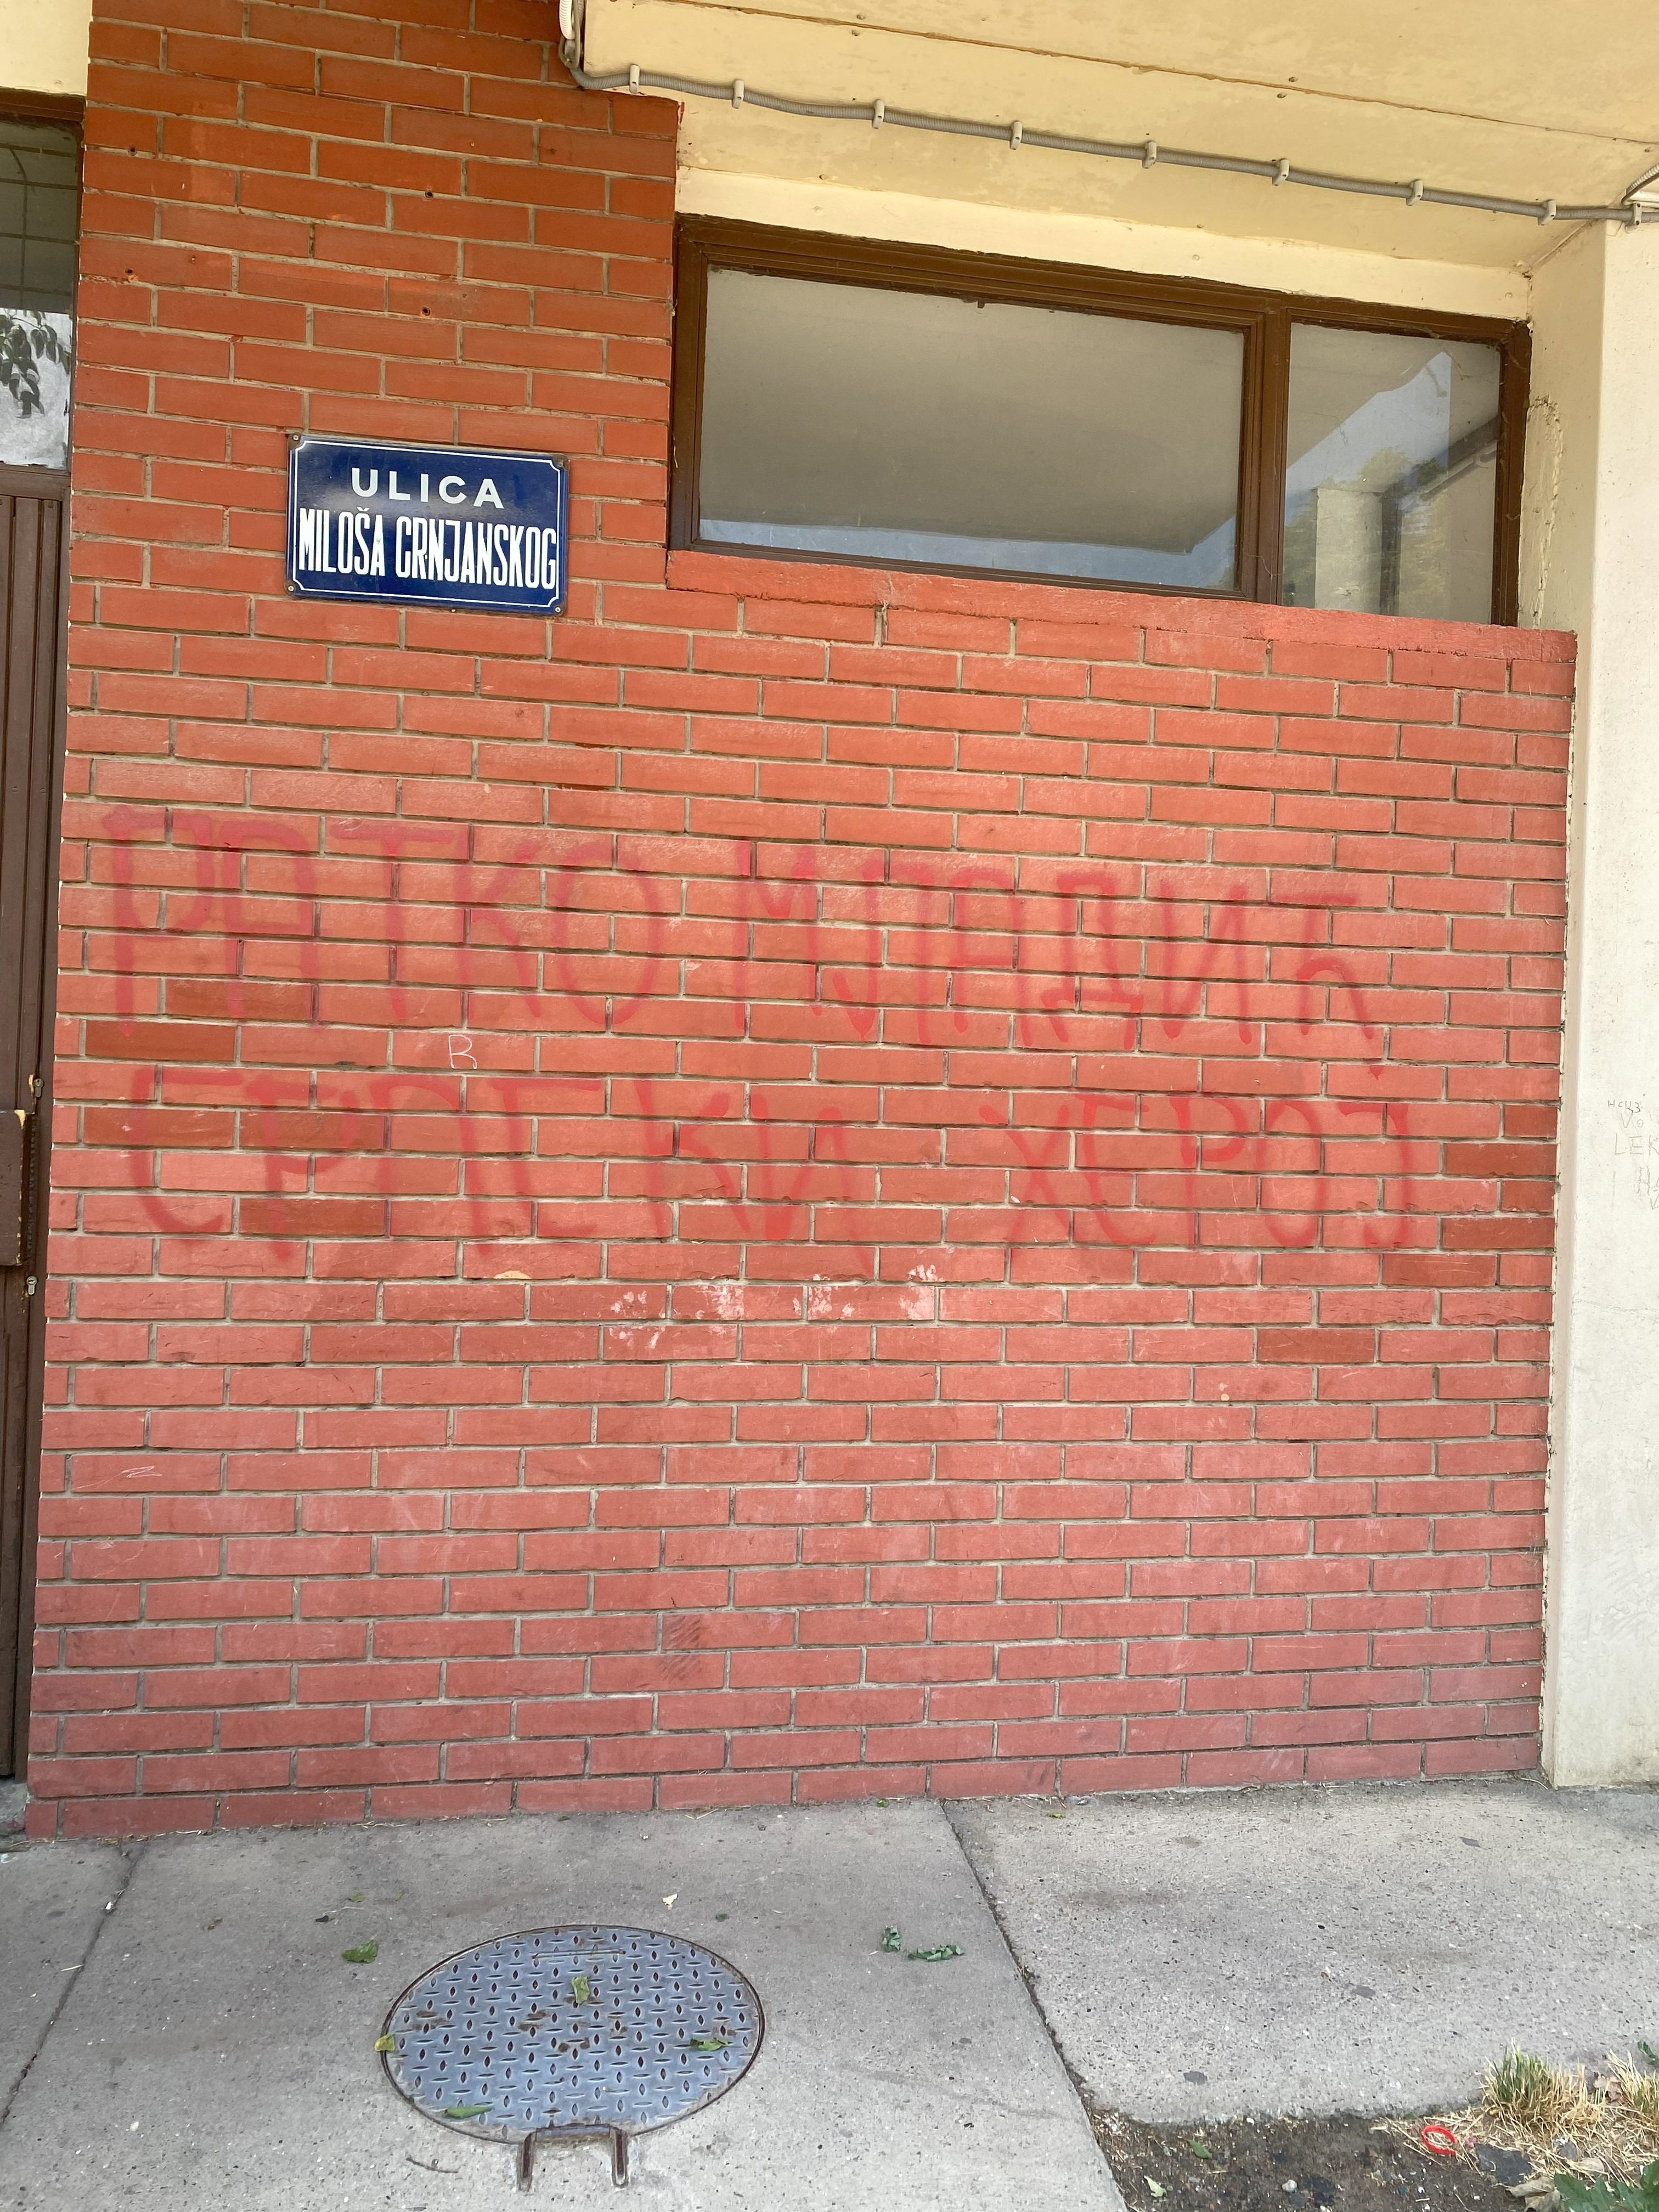 ULICA
MILOŠA CRNJANSKOG
РАТКО МЛАДИЋ
B
СРПСКИ ХЕРОЈ